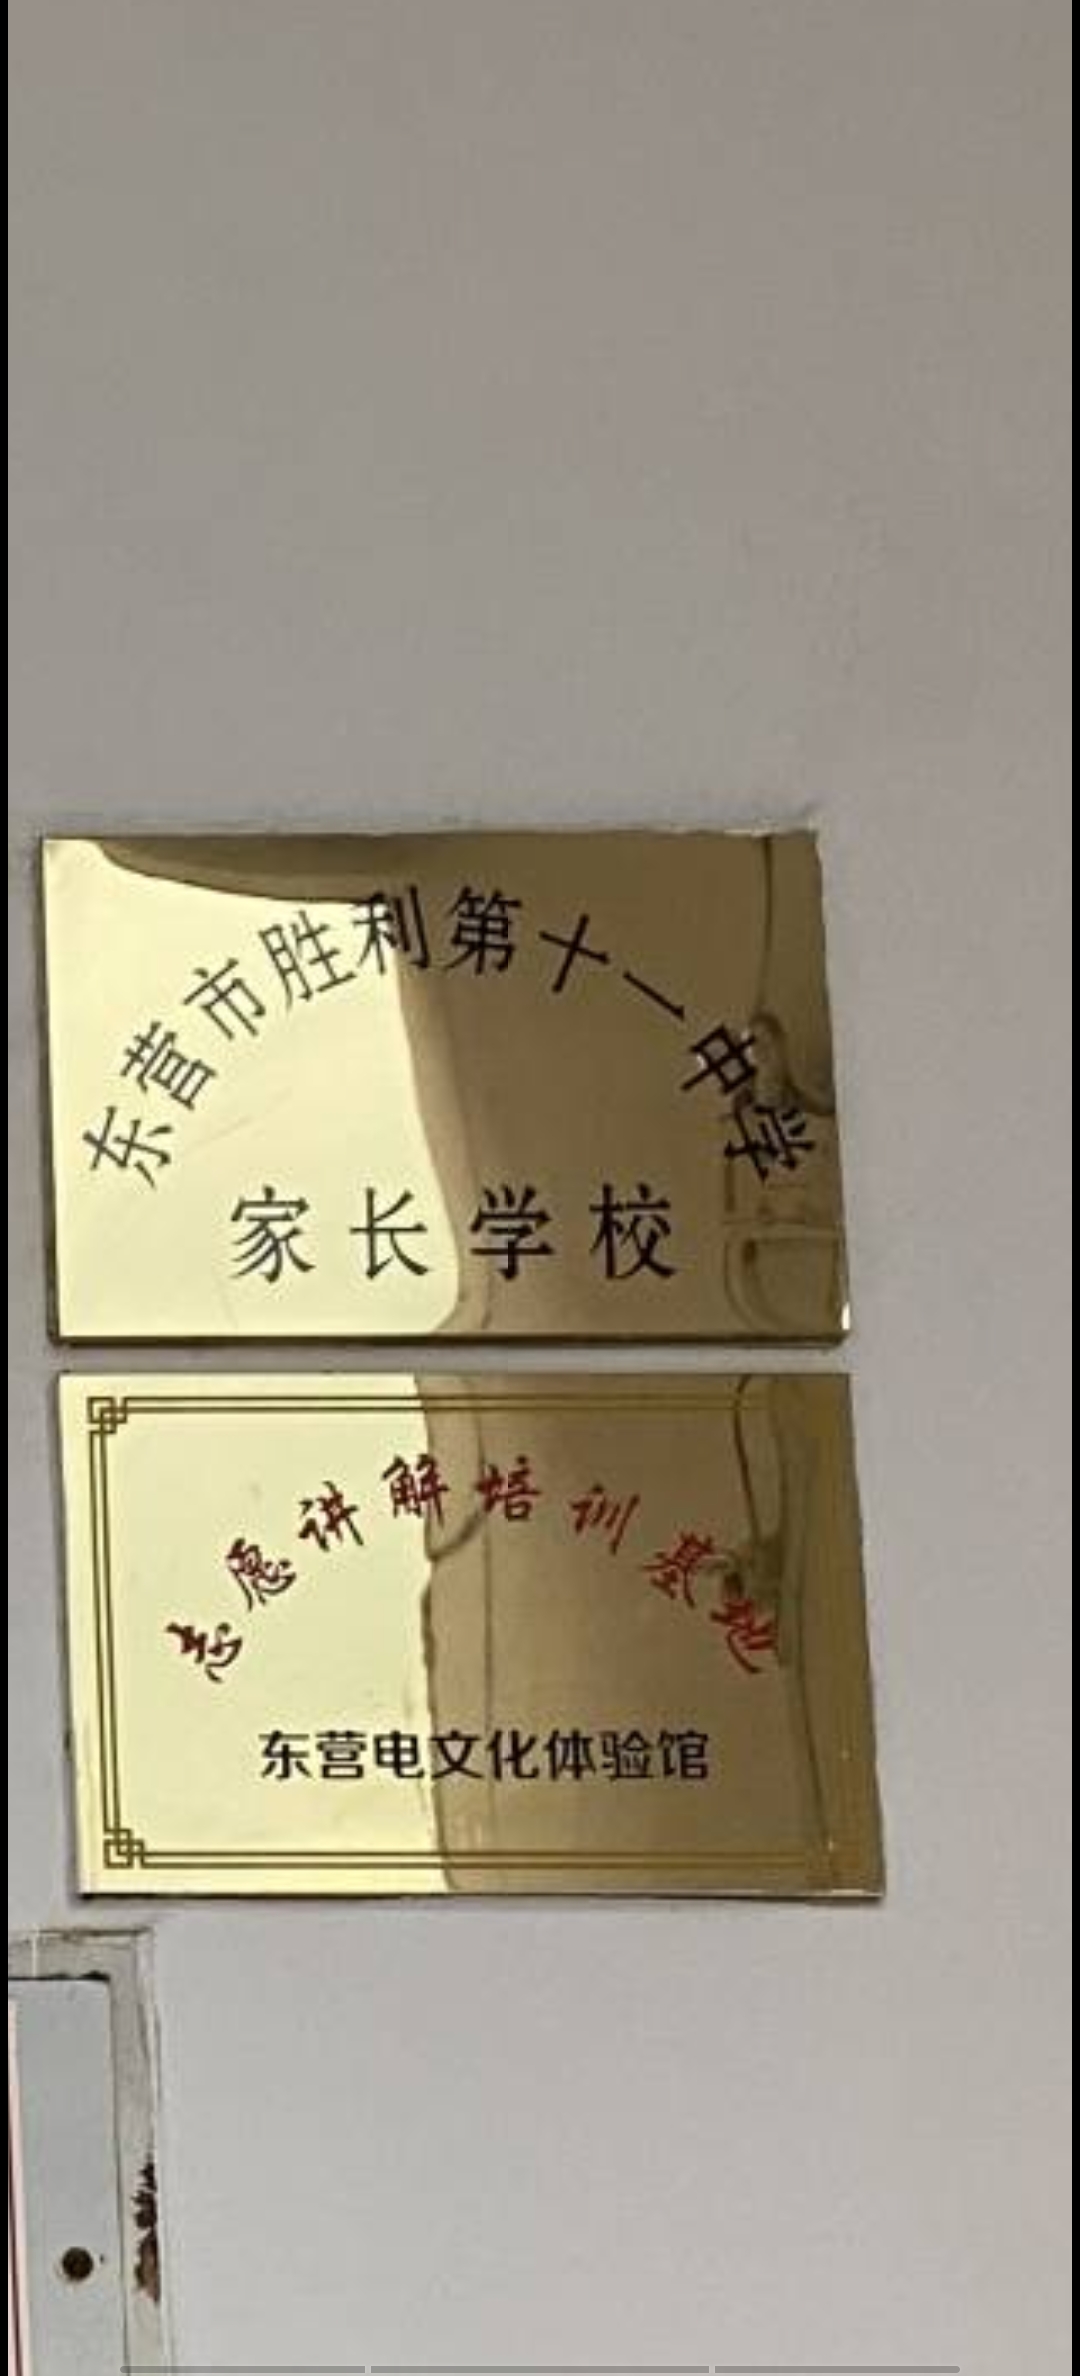 东营市胜利第十一中学
家长学校
志愿讲解培训基地
东营电文化体验馆